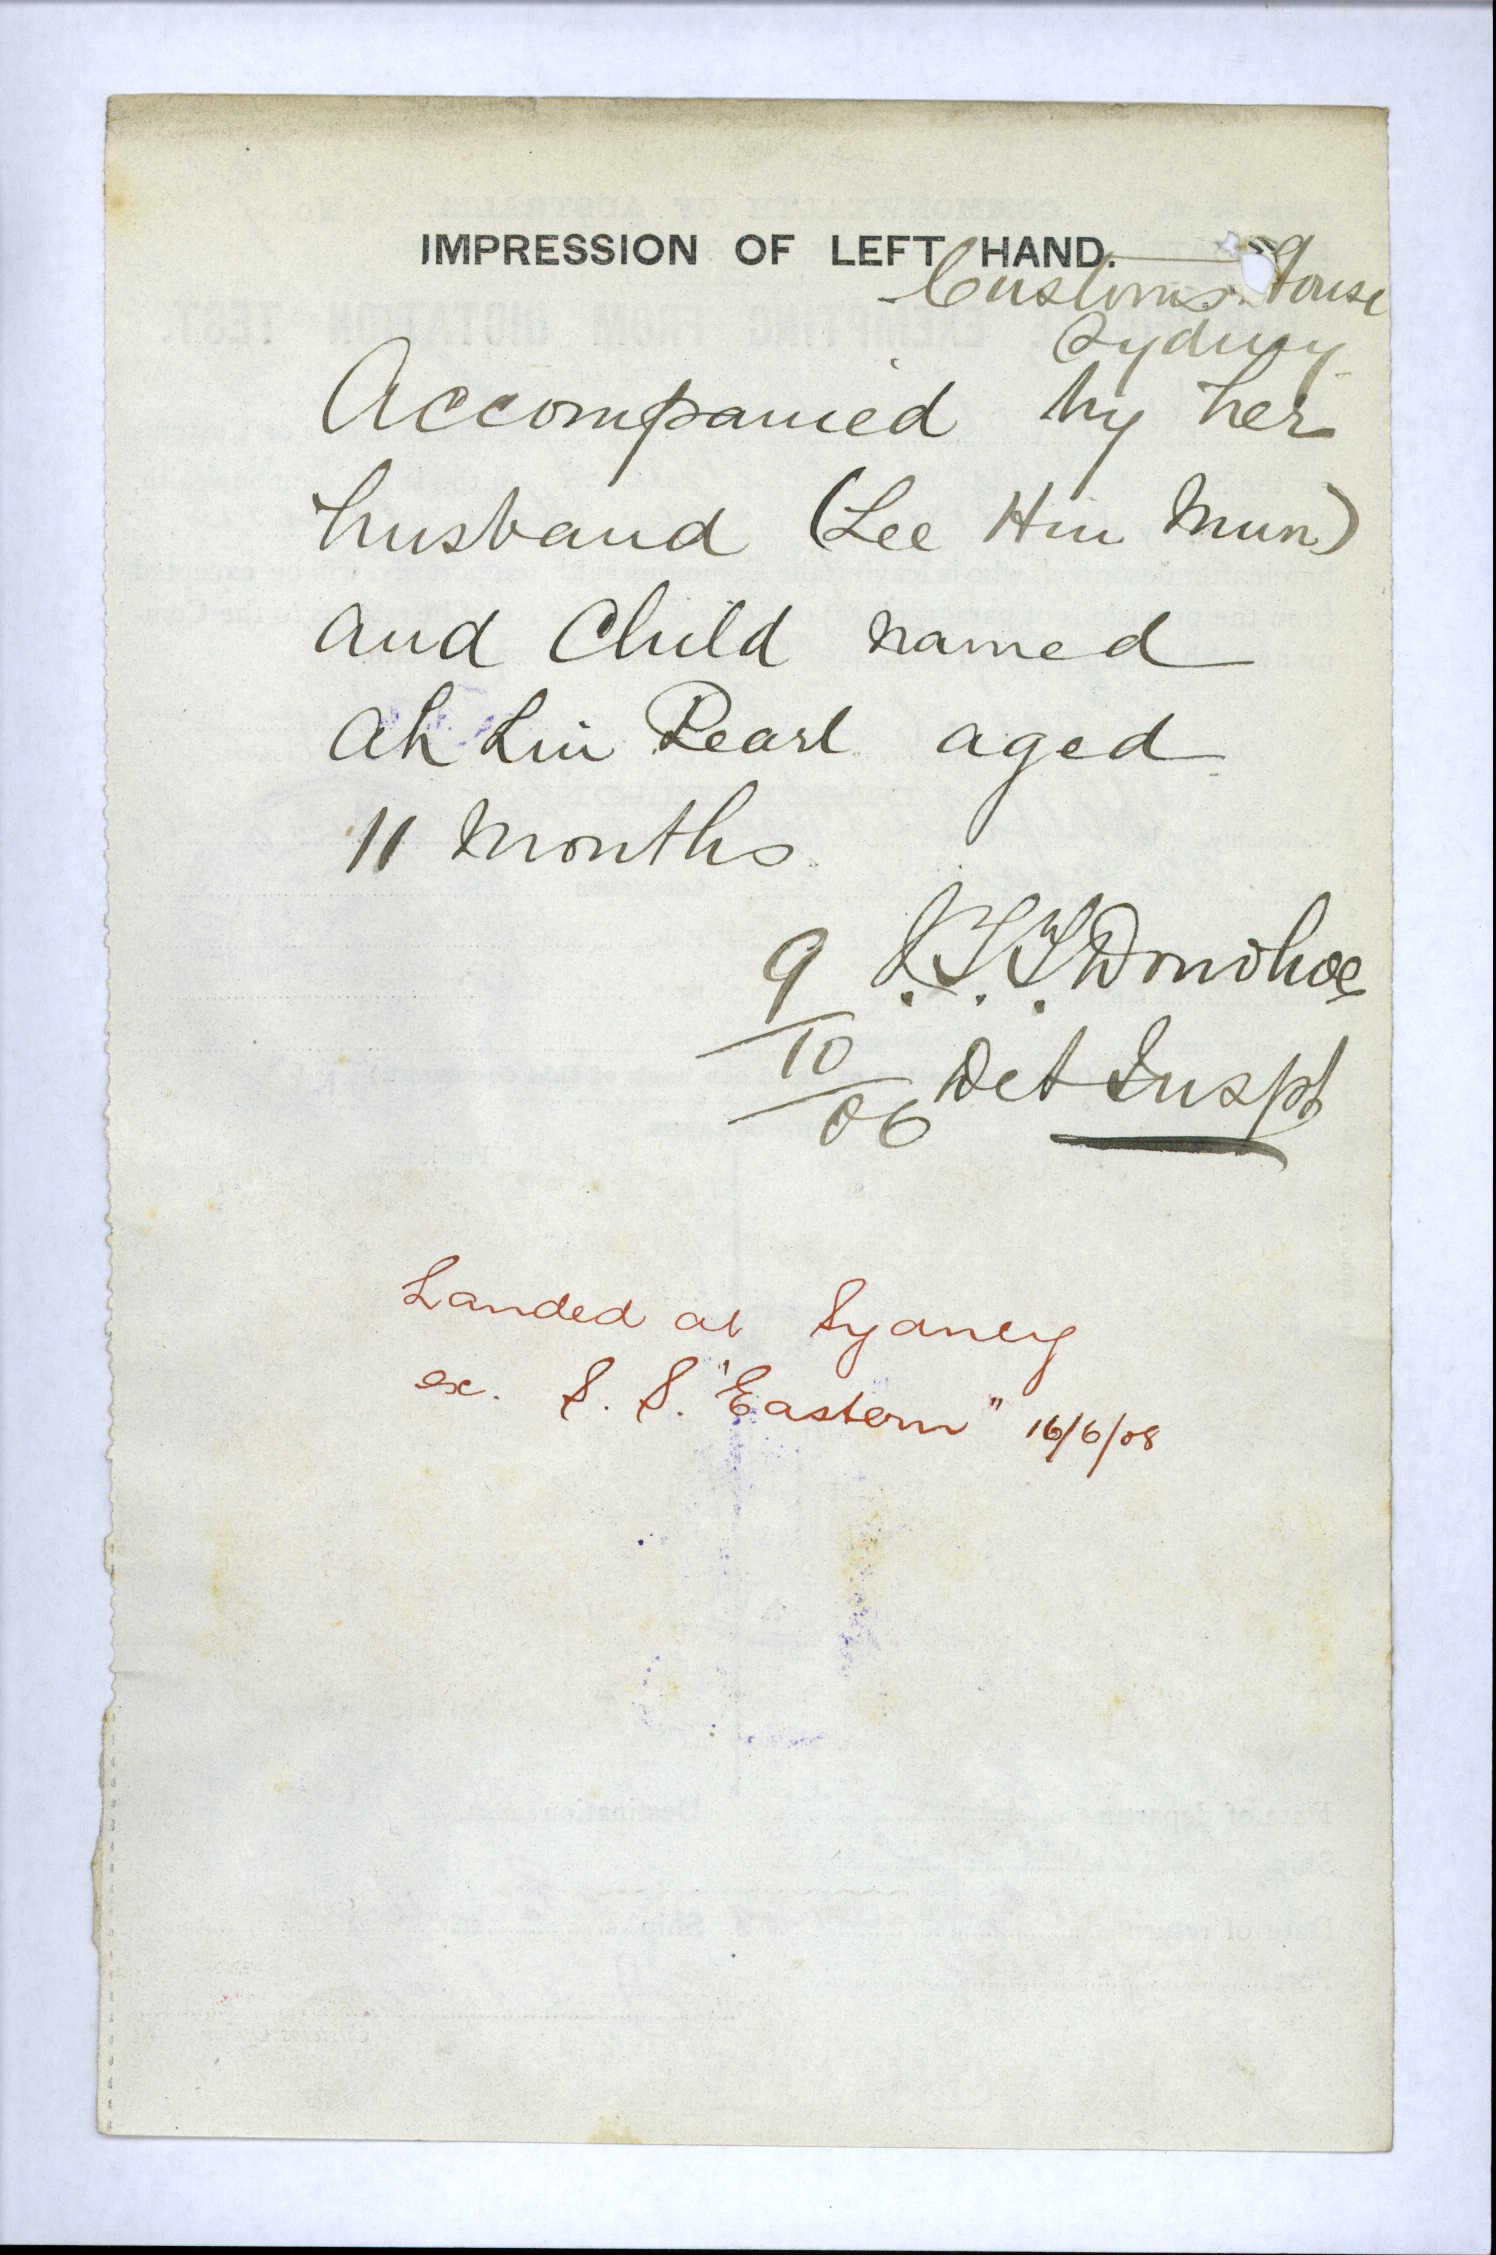 IMPRESSION OF LEFT HAND.
Customs House
Sydney
Accompanied by her
husband (Lee Hin Mun)
and Child named
Ah Lin Pearl aged
11 Months
9/10/06 J.T.T. Donohoe
Det Inspt
Landed at Sydney
ex. S. S. "Eastern" 16/6/08